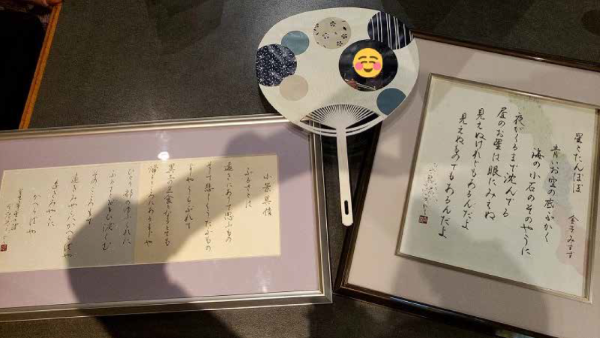 星とたんぽぽ
金子みすゞ
青いお空の底ふかく
海の小石のそのやうに
夜がくるまで沈んでる
昼のお星は眼にみえぬ
見えぬけれどもあるんだよ
見えぬものでもあるんだよ
小景異情
ふるさとは
遠きにありて思ふもの
そして悲しくうたふもの
よしや
うらぶれて
異土の乞食となるとても
帰るところにあるまじや
ひとり都のゆふぐれに
ふるさとおもひ涙ぐむ
そのこころもて
遠きみやこにかへらばや
遠きみやこに
かへらばや